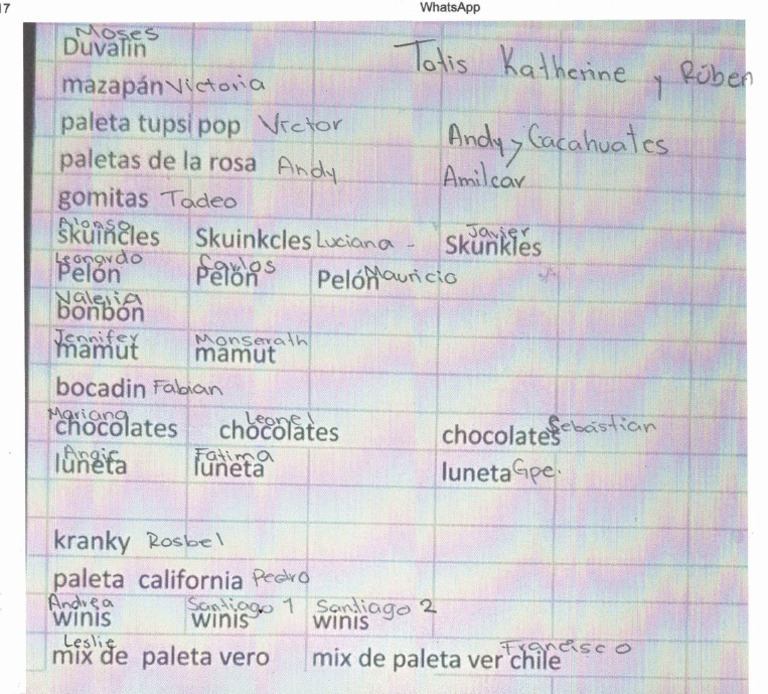 17 WhatsApp
Moses
Duvalin
Totis Katherine y Rúben
mazapán Victoria
paleta tupsi pop Victor
Andy y Cacahuates
paletas de la rosa Andy
Amilcar
gomitas Tadeo
Alonso Javier
skuincles Skuinkcles Luciana - Skunkles
Leonardo Carlos
Pelón Pelón Pelón Mauricio
Valeria
bonbón
Jennifer Monserath
mamut mamut
bocadin Fabian
Mariana Leonel Sebastian
chocolates chocolates chocolates
Angie Fatima
luneta luneta luneta Gpe.
kranky Rosbel
paleta california Pedro
Andrea Santiago 1 Santiago 2
winis winis winis
Leslie Francisco
mix de paleta vero mix de paleta ver chile